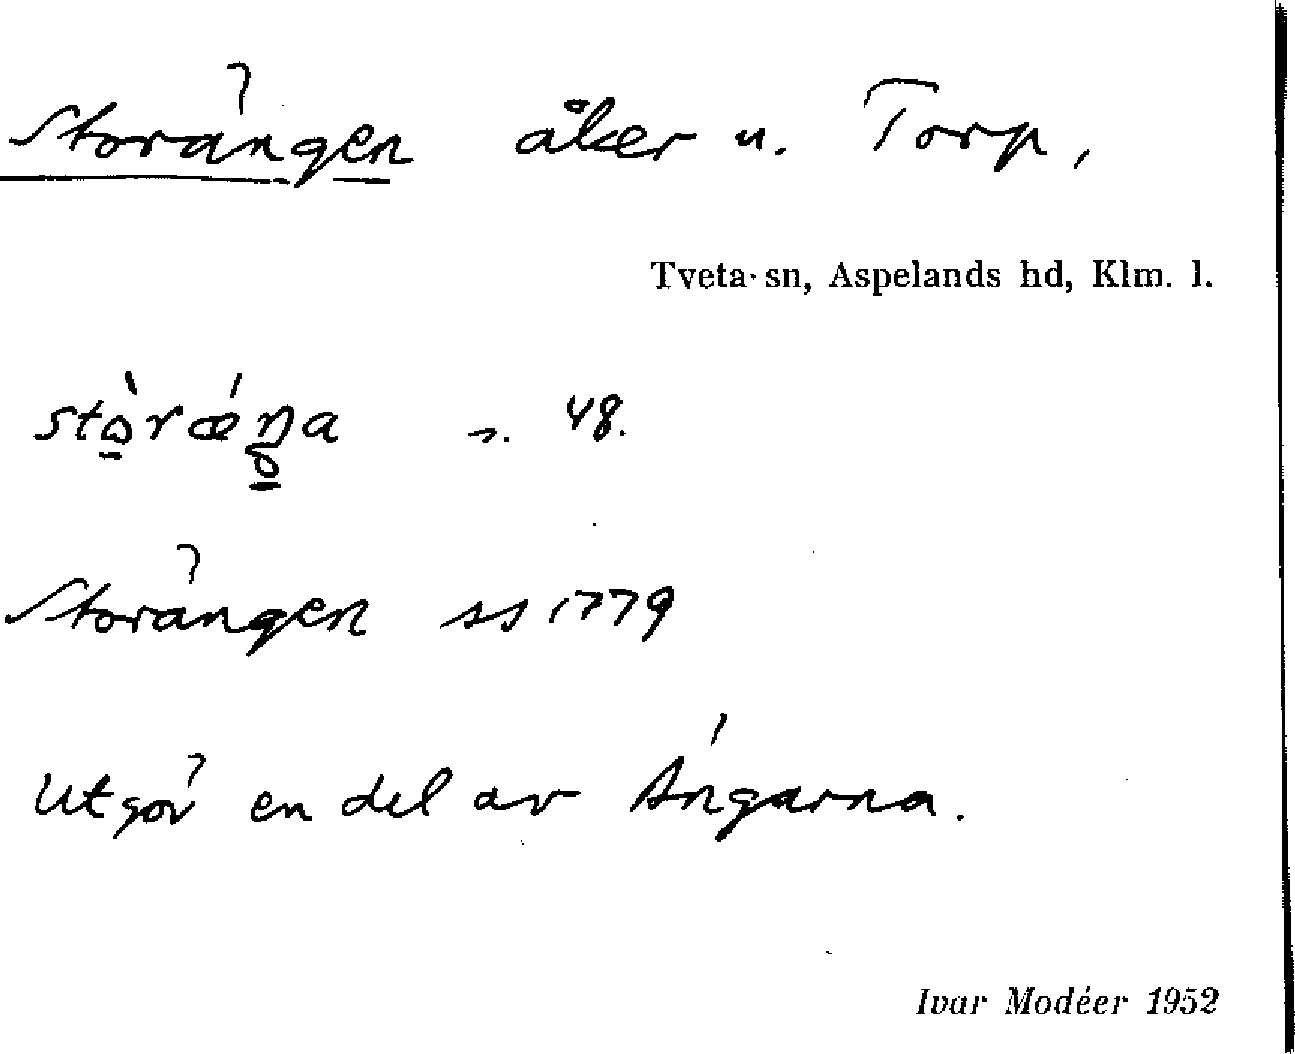 Storängen åker u. Torp,
Tveta sn, Aspelands hd, Klm. l.
stòrǽŋa s. 48.
Storängen ss 1779
Utgör en del av Ängarna.
Ivar Modéer 1952